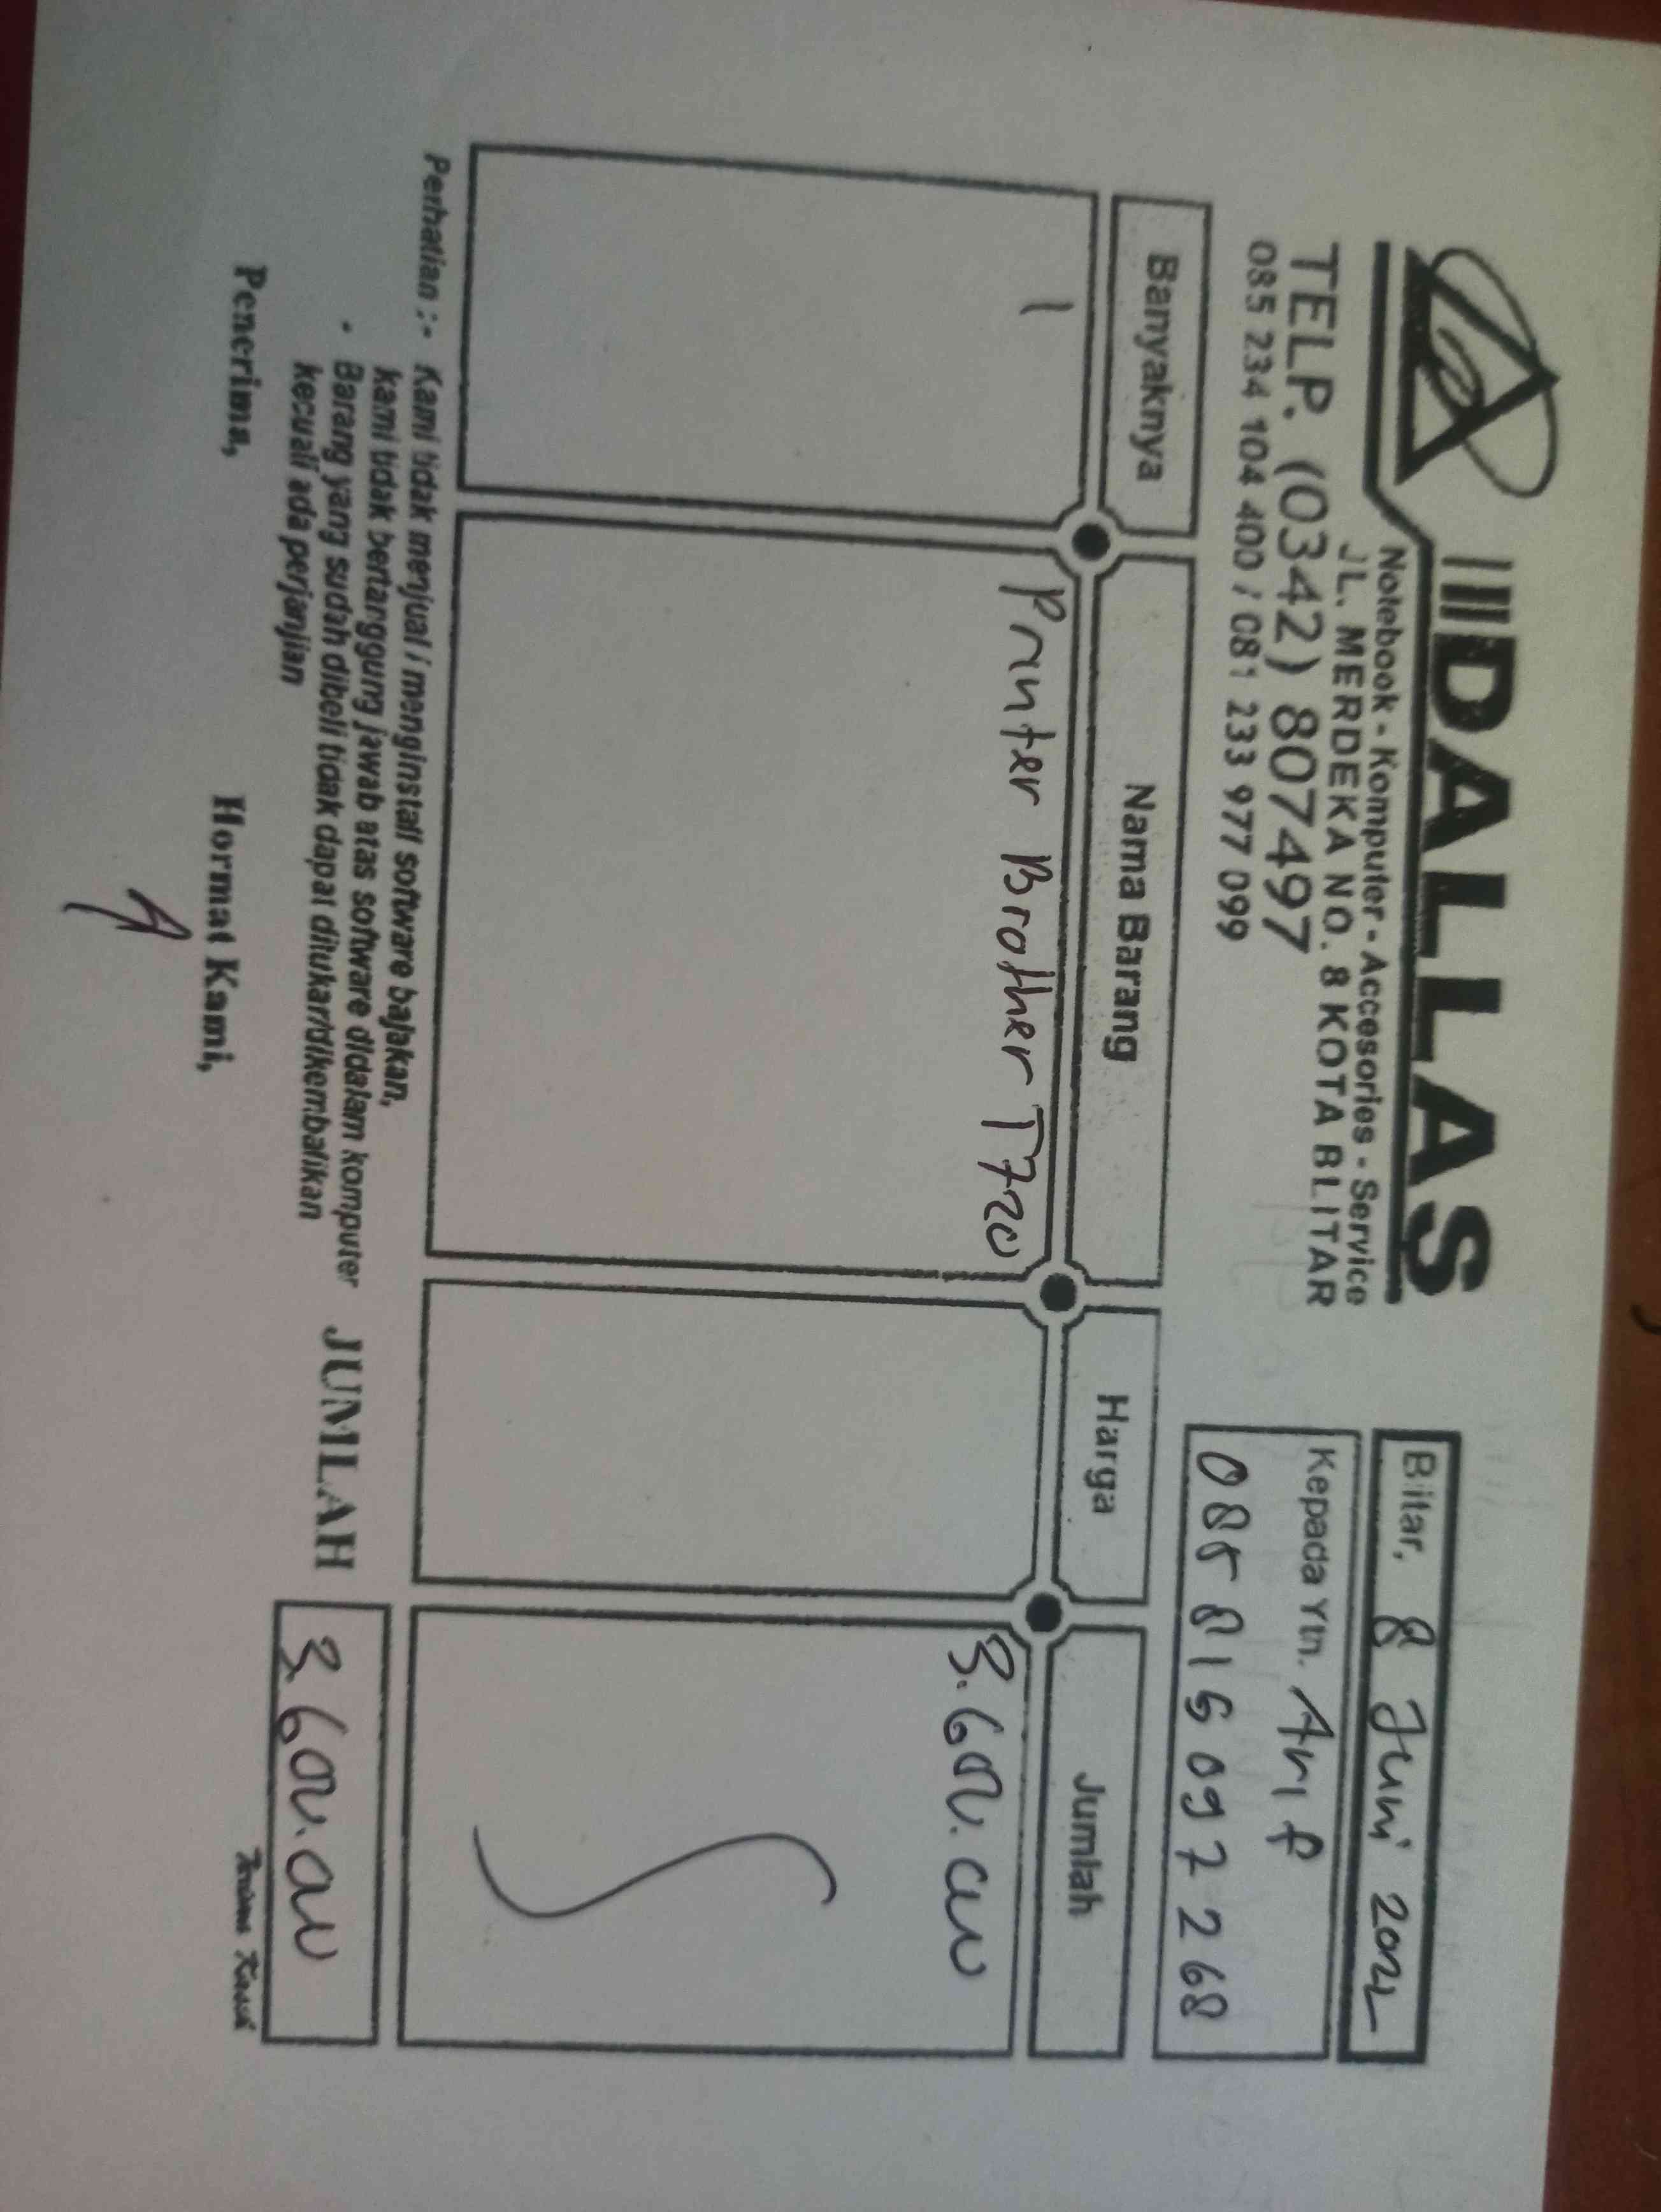 DALLAS
Notebook - Komputer - Accesories - Service
JL. MERDEKA NO. 8 KOTA BLITAR
TELP. (0342) 807497
085 234 104 400 / 081 233 977 099
Blitar, 8 Juni 2022
Kepada Yth. Arif
085 815 097 268
Banyaknya Nama Barang Harga Jumlah
1 Printer Brother T720 3.600.000
Perhatian :- Kami tidak menjual / menginstall software bajakan,
kami tidak bertanggung jawab atas software didalam komputer
- Barang yang sudah dibeli tidak dapat ditukar/dikembalikan
kecuali ada perjanjian
JUMLAH 3.600.000
Terima Kasih
Penerima, Hormat Kami,